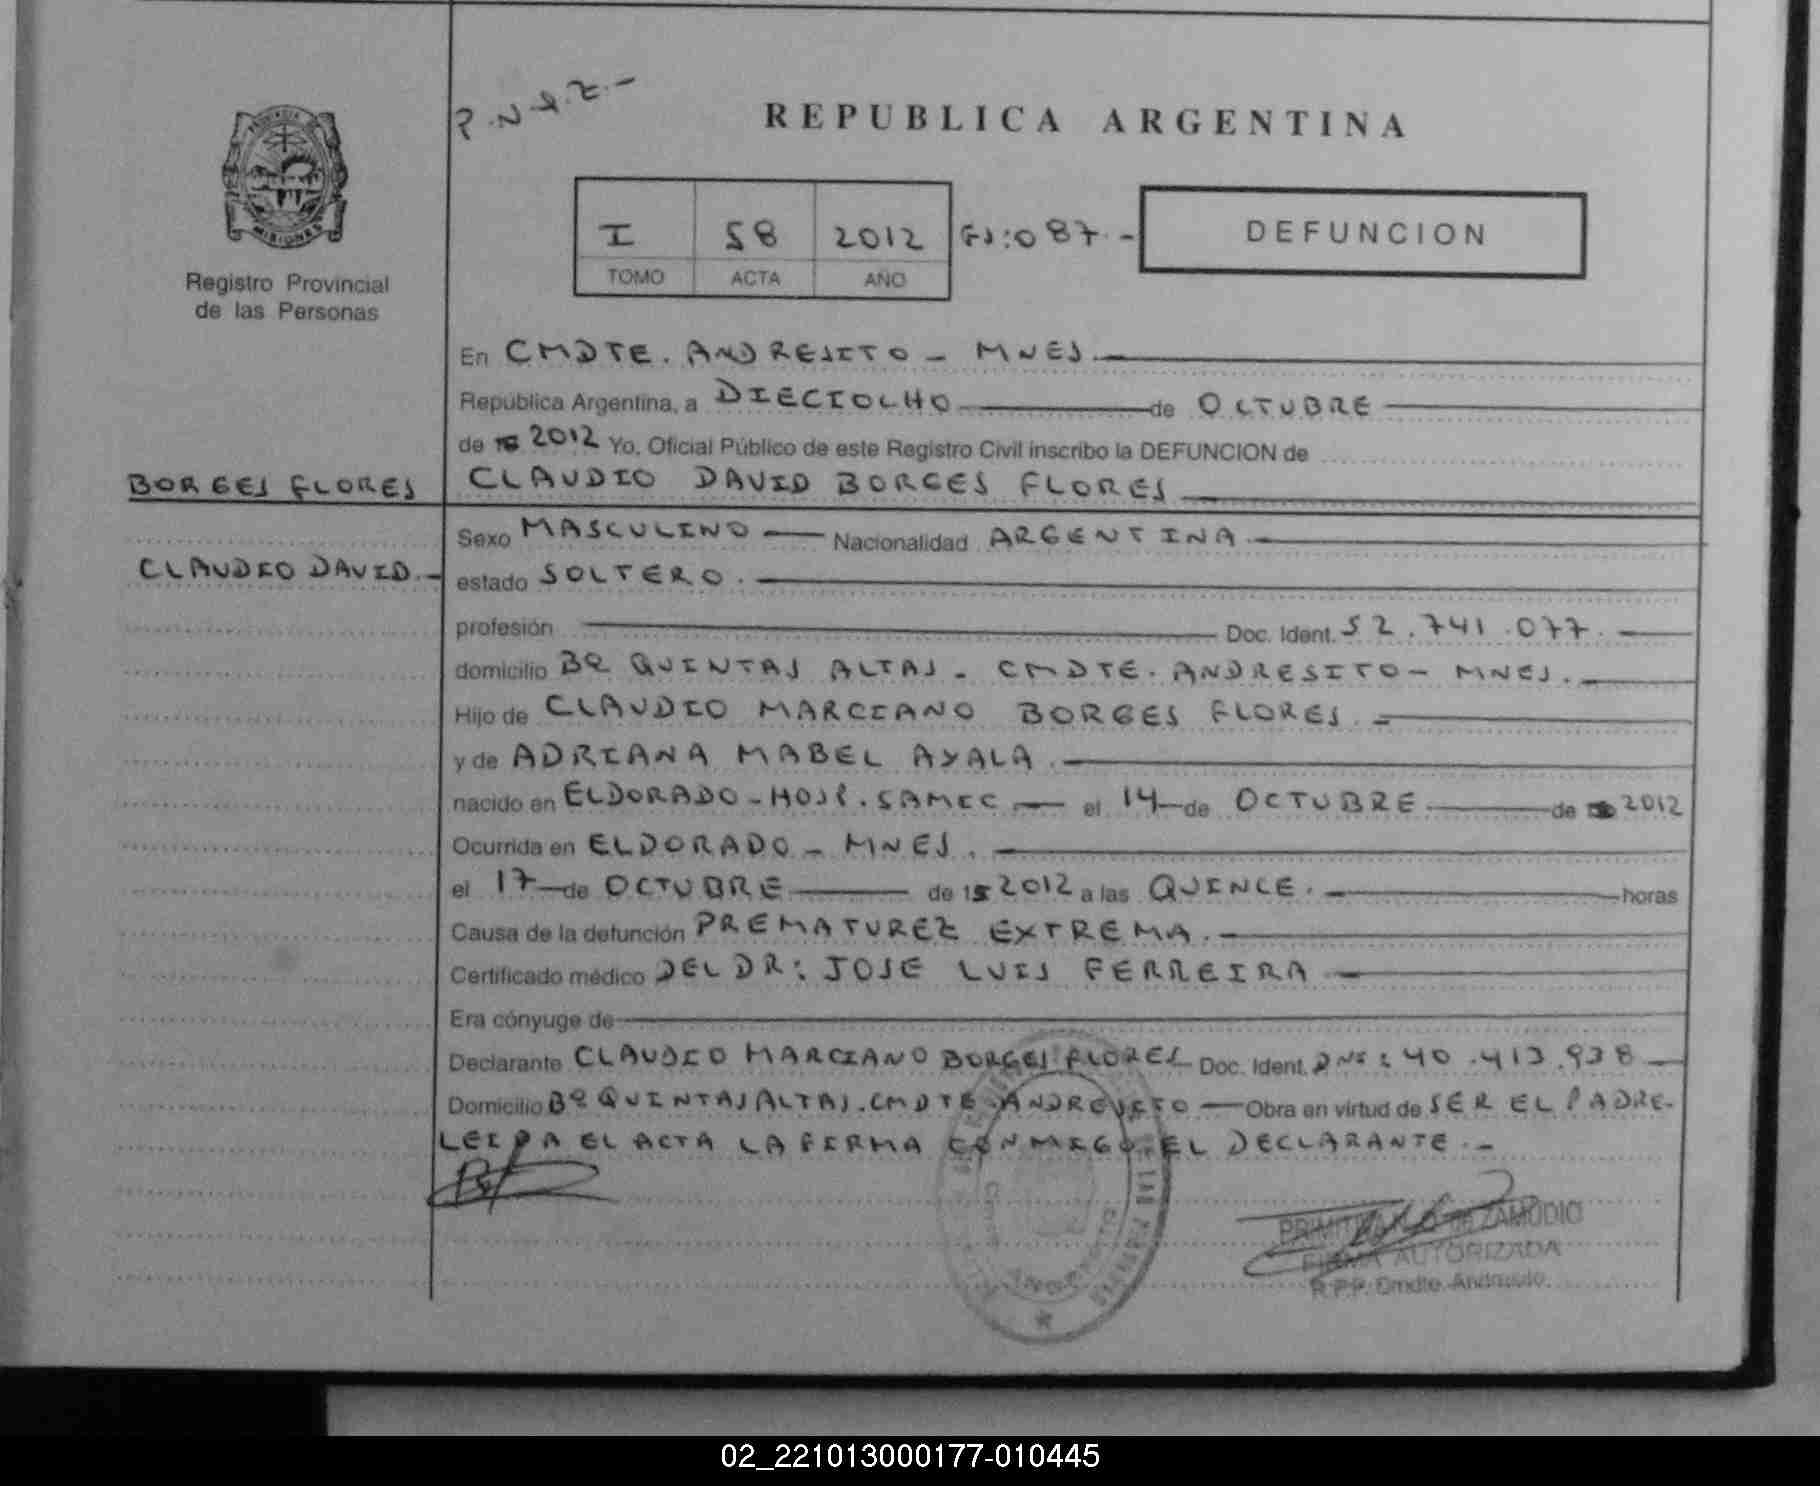 P.N.A.Z.-
REPUBLICA ARGENTINA
PROVINCIA DE
MISIONES
Registro Provincial
de las Personas
I 58 2012 Fº:087.-
TOMO ACTA AÑO
DEFUNCION
En CMDTE. ANDRESITO - MNES.
República Argentina, a DIECIOCHO de OCTUBRE
de 2012 Yo, Oficial Público de este Registro Civil inscribo la DEFUNCION de
BORGES FLORES CLAUDIO DAVID BORGES FLORES
Sexo MASCULINO Nacionalidad ARGENTINA.
CLAUDIO DAVID.- estado SOLTERO.
profesión Doc. Ident. 52.741.077.
domicilio Bº QUINTAS ALTAS - CMDTE. ANDRESITO - MNES.
Hijo de CLAUDIO MARCIANO BORGES FLORES.
y de ADRIANA MABEL AYALA.
nacido en ELDORADO - HOSP. SAMIC el 14 de OCTUBRE de 2012
Ocurrida en ELDORADO - MNES.
el 17 de OCTUBRE de 2012 a las QUINCE. horas
Causa de la defunción PREMATUREZ EXTREMA.
Certificado médico DEL DR: JOSE LUIS FERREIRA
Era cónyuge de
Declarante CLAUDIO MARCIANO BORGES FLORES Doc. Ident. DNI: 40.413.938
Domicilio Bº QUINTAS ALTAS. CMDTE ANDRESITO Obra en virtud de SER EL PADRE-
LEIDA EL ACTA LA FIRMA CONMIGO EL DECLARANTE.-
ZAMUDIO
FIRMA AUTORIZADA
R.P.P. Cmdte. Andresito.
02_221013000177-010445